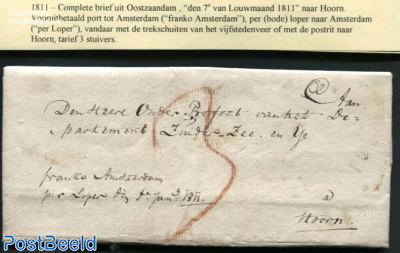 1811 – Complete brief uit Oostzaandam , "den 7e van Louwmaand 1811" naar Hoorn.
Vooruitbetaald port tot Amsterdam ("franko Amsterdam"), per (bode) loper naar Amsterdam
("per Loper"), vandaar met de trekschuiten van het vijfstedenveer of met de postrit naar
Hoorn, tarief 3 stuivers.
Aan
Den Heere Onder Prefect van het De-
partement Zuider Zee. en Ye
3
franko Amsterdam
per Loper Jan. 1811.
a
Hoorn.
PostBeeld